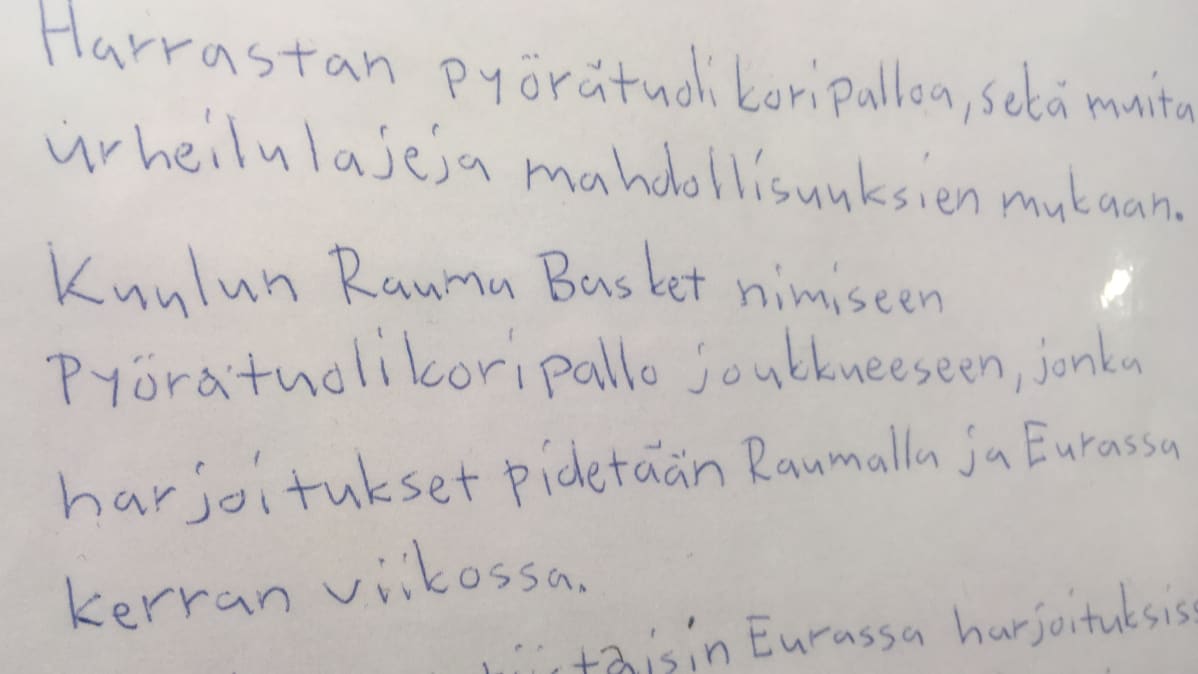 Harrastan pyörätuoli koripalloa, sekä muita
urheilulajeja mahdollisuuksien mukaan.
Kuulun Rauma Basket nimiseen
Pyörätuolikoripallo joukkueeseen, jonka
harjoitukset pidetään Raumalla ja Eurassa
kerran viikossa.
Eurassa